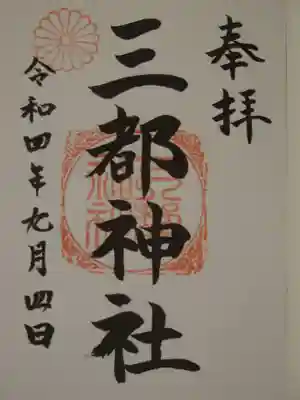 奉拝
三都神社
令和四年九月四日